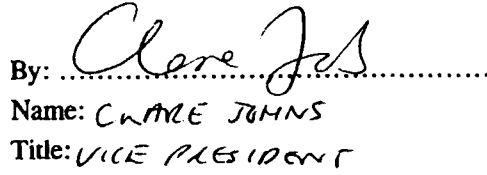 By: Clare Johns
Name: CLARE JOHNS
Title: VICE PRESIDENT